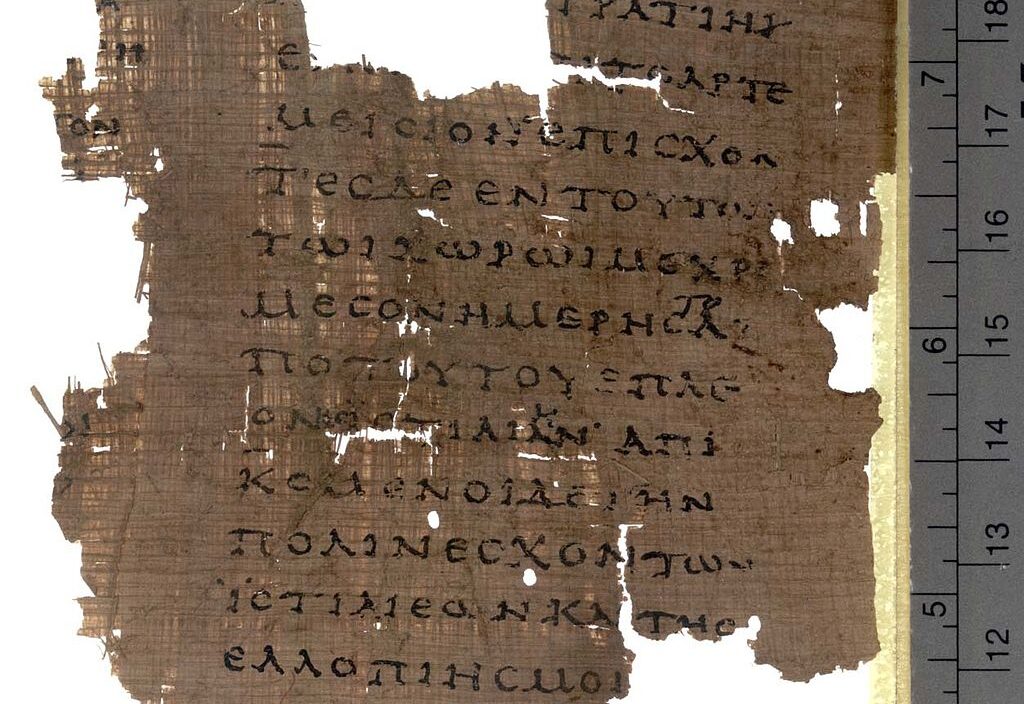 ΤΡΑΤΙΗ
Η Ε ΤΟΑΡΤΕ
ΤΟΝ ΜΕΙCΙΟΝ ΕΠΙCΧΟΝ
ΤΕCΔΕ ΕΝ ΤΟΥΤΩ
ΤΩΙΧΩΡΩΙΜΕΧΡΙ
ΜΕCΟΝΗΜΕΡΗCΑ
ΠΟΤΟΥΤΟΥ ΕΠΛΕ
ΟΝΕCΙCΤΙΑΙΑΝ ΑΠΙ
ΚΟΜΕΝΟΙΔΕΤΗΝ
ΠΟΛΙΝΕCΧΟΝΤΩΝ
ΪCΤΙΑΙΕΩΝΚΑΙΤΗC
ΕΛΛΟΠΙΗCΜΟΙ
7
6
5
18
17
16
15
14
13
12